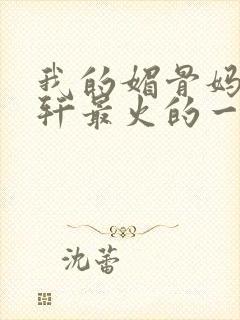 我的媚骨妈
轩最火的一
沈蕾